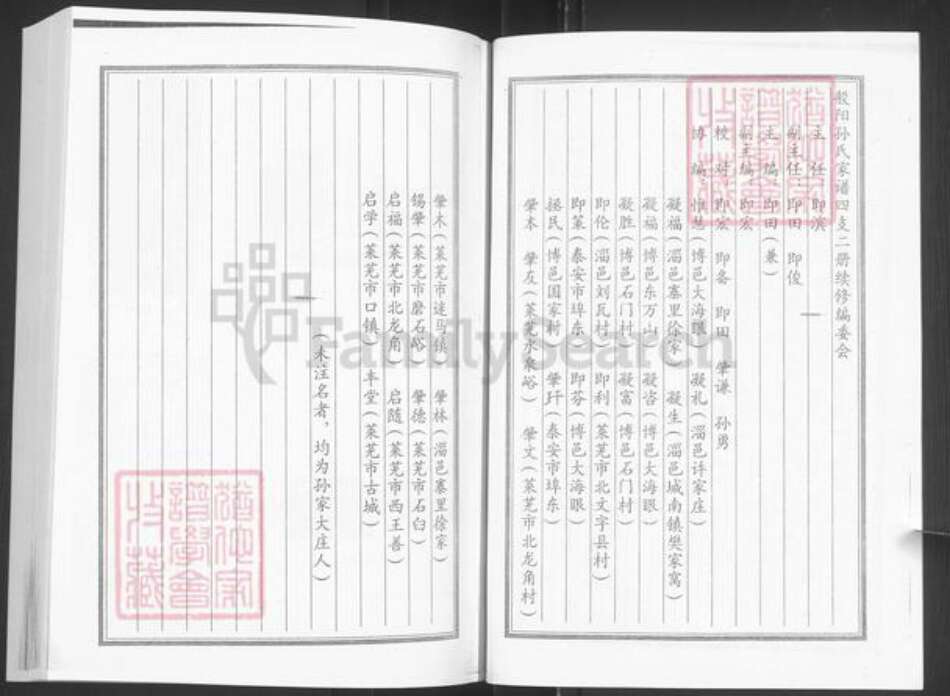 般阳孙氏家谱四支二册续修编委会
主任：即滨
副主任：即田 即俊
主编：即田（兼）
副主编：即宏
校对：即宏 即田 肇谦 孙勇
协编：惟慧（博邑大海眼） 凝礼（淄邑许家庄）
凝福（淄邑寨里徐家） 凝生（淄邑城南镇樊家窝）
凝福（博邑东万山） 凝咨（博邑大海眼）
凝胜（博邑石门村） 凝富（博邑石门村）
即伦（淄邑刘瓦村） 即利（莱芜市北文字县村）
即策（泰安市埠东） 即芬（博邑大海眼）
拯民（博邑国家村） 肇玕（泰安市埠东）
肇本 肇友（莱芜水泉峪） 肇文（莱芜市北龙角村）
肇木（莱芜市迷马镇） 肇林（淄邑寨里徐家）
锡肇（莱芜市磨石峪） 肇德（莱芜市石臼）
启福（莱芜市北龙角） 启随（莱芜市西王善）
启学（莱芜市口镇） 丰堂（莱芜市古城）
（未注名者，均为孙家大庄人）
FamilySearch